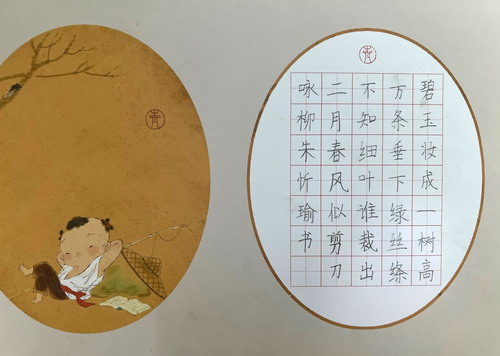 碧玉妆成一树高
万条垂下绿丝绦
不知细叶谁裁出
二月春风似剪刀
咏柳朱忻瑜书